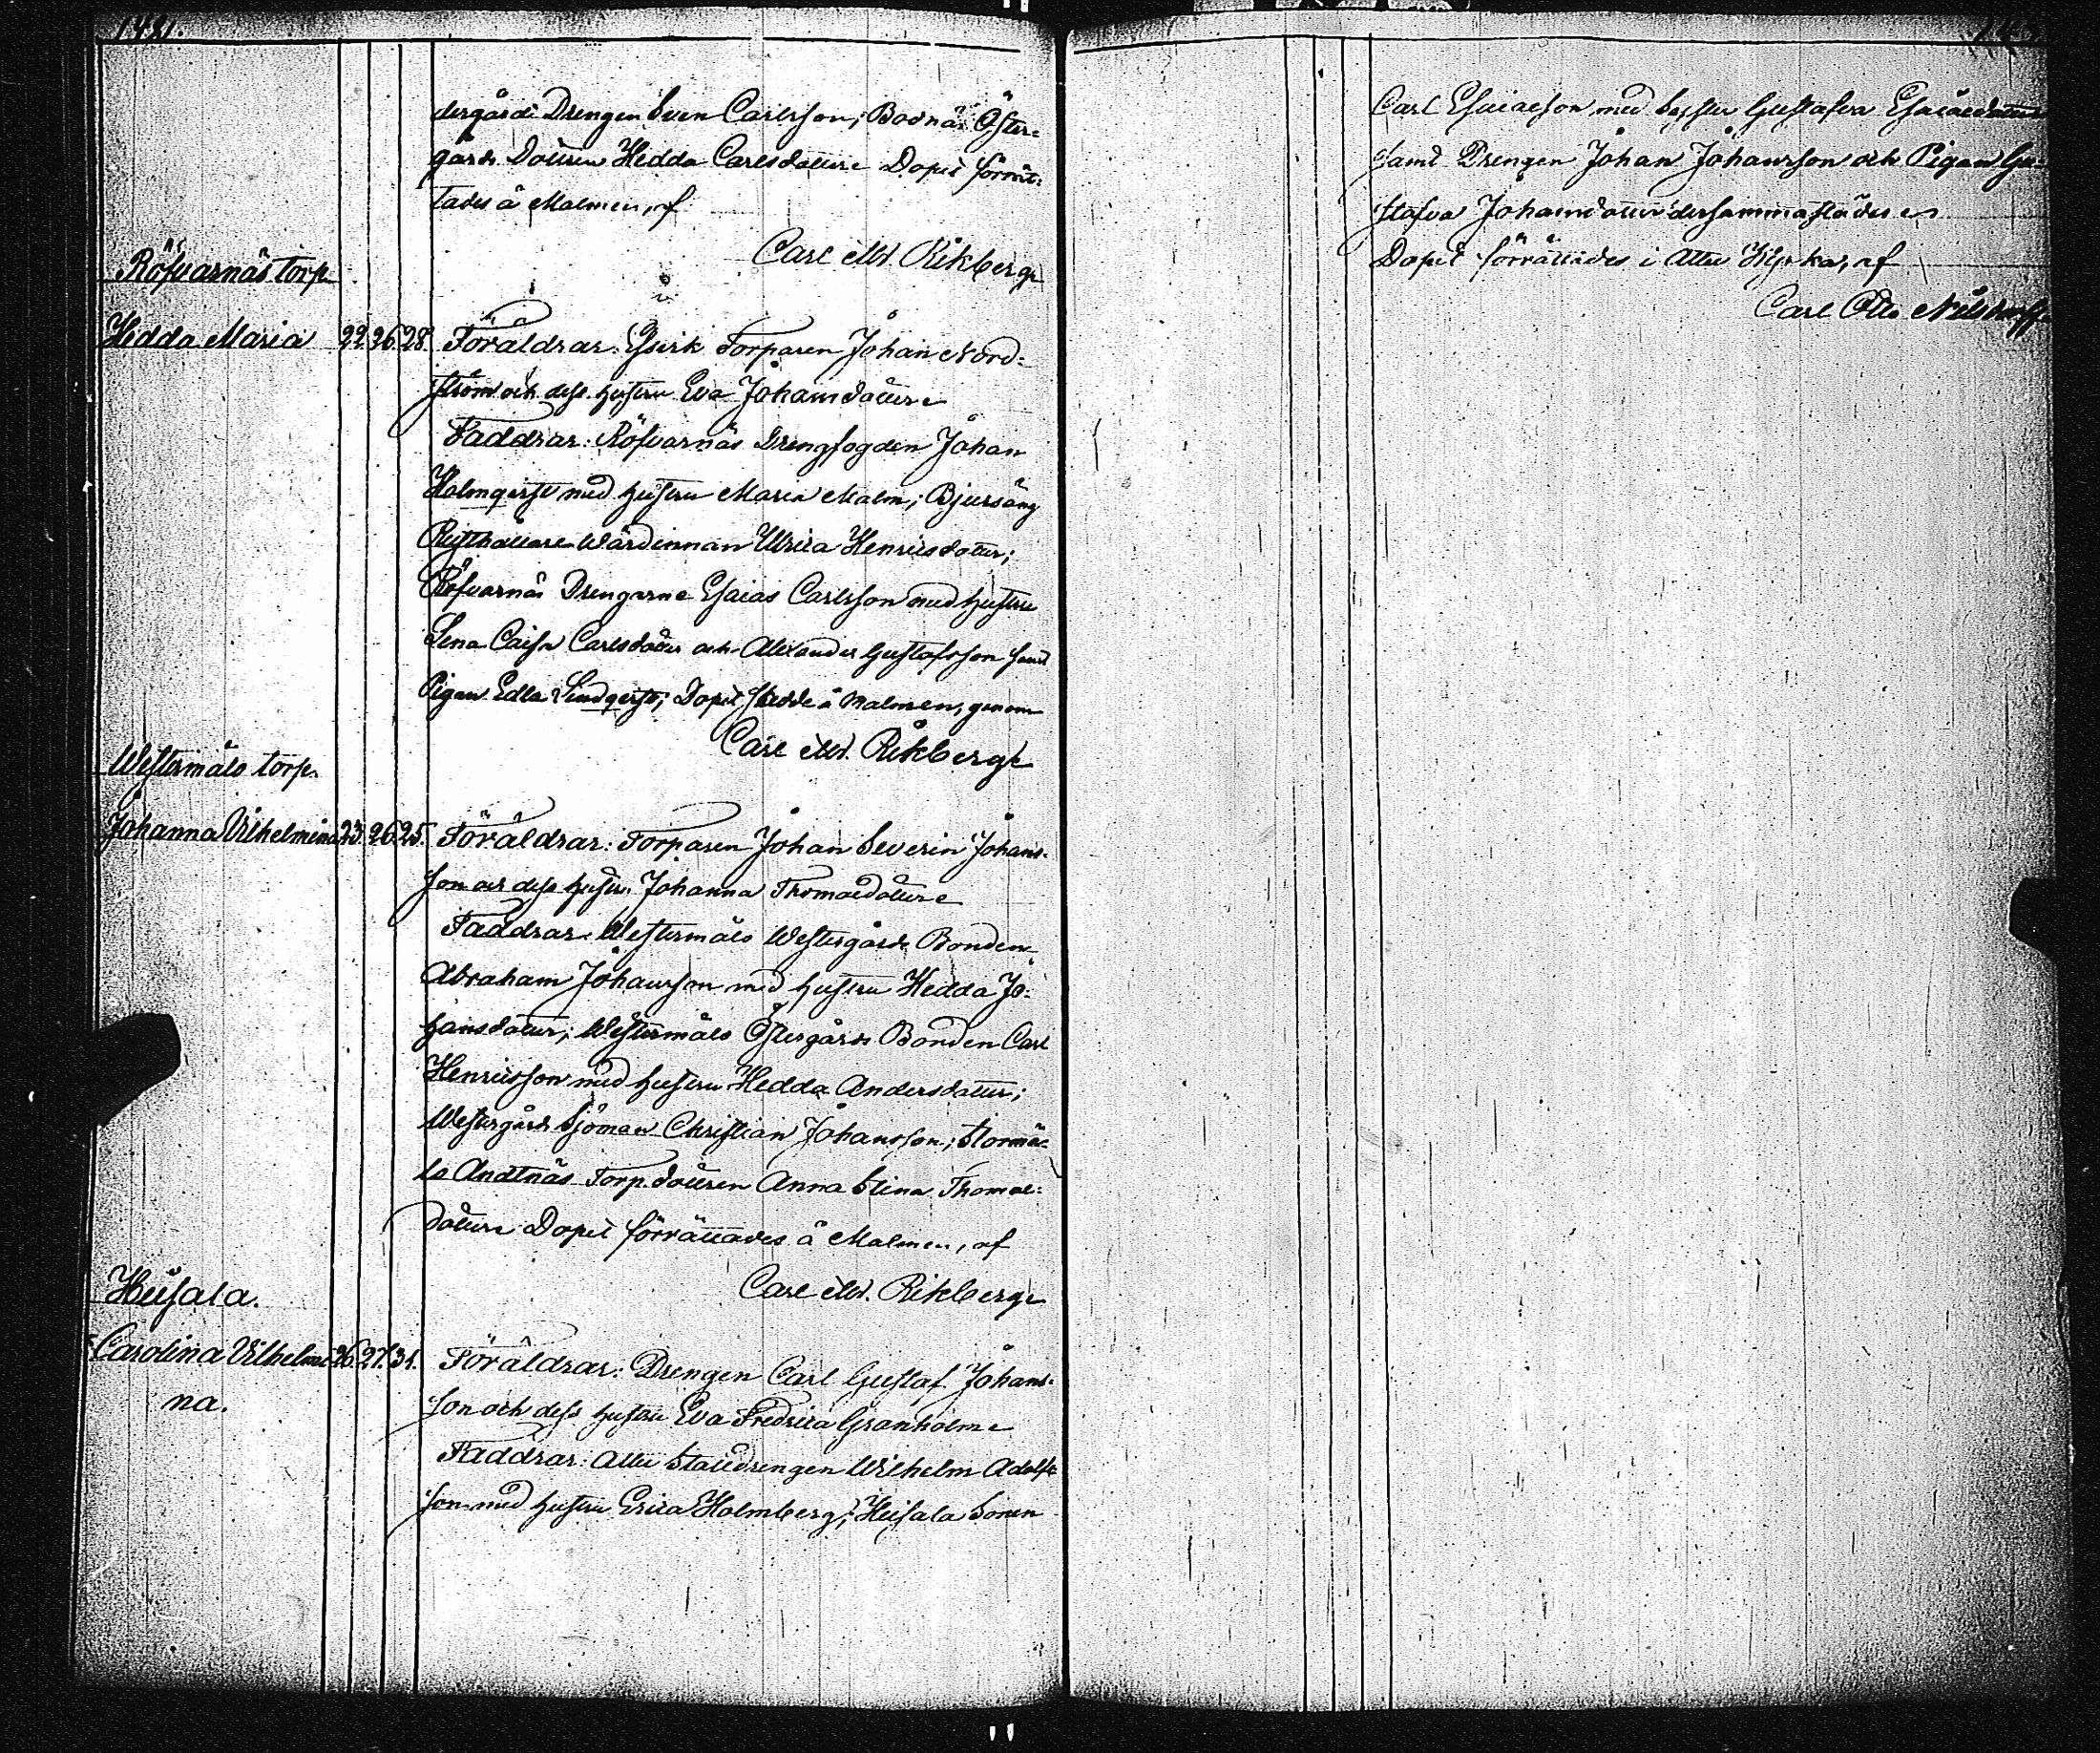 dergårds Drengen Sven Carlsson; Bodnäs Öster-
gårds Dottren Hedda Carlsdotter. Dopet förrät-
tades å Malmen, af
Carl M. Rikberg.
Röfvarnäs torp
Hedda Maria 22. 26. 28. Föräldrar: Torparen Johan Nord-
ström och dess hustru Eva Johansdotter.
Faddrar: Röfvarnäs Drengfogden Johan
Holmqvist med hustru Maria Malm; Bjursäng
Rusthållare Wärdinnan Ulrica Henricsdotter;
Röfvarnäs Drengarne Esaias Carlsson med hustru
Lena Caisa Carlsdotter och Alexander Gustafsson samt
Pigan Edla Lindqvist; Dopet skedde å Malmen, genom
Carl M. Rikberg.
Westermåls torp.
Johanna Vilhelmina 23. 26. 25. Föräldrar: Torparen Johan Severin Johans-
son och dess hustru Johanna Thomasdotter.
Faddrar: Westermåls Westergårds Bonden
Abraham Johansson med hustru Hedda Jo-
hansdotter; Westermåls Östergårds Bonden Carl
Henricsson med hustru Hedda Andersdotter;
Westergårds Sjöman Christian Johansson; Stormä-
lö Andtnäs Torp. dottren Anna Stina Thomas-
dotter. Dopet förrättades å Malmen, af
Carl M. Rikberg.
Heisala.
Carolina Vilhelmi- 26. 27. 31. Föräldrar: Drengen Carl Gustaf Johans-
na.
son och dess hustru Eva Fredrica Granholm.
Faddrar: Attu Stalldrengen Wilhelm Adolfs-
son med hustru Erica Holmberg; Heisala Sonen
Carl Esaiasson med syster Gustafva Esaiasdotter
samt Drengen Johan Johansson och Pigan Gu-
stafva Johansdotter dersammastädes.
Dopet förrättades i Attu af
Carl Otto